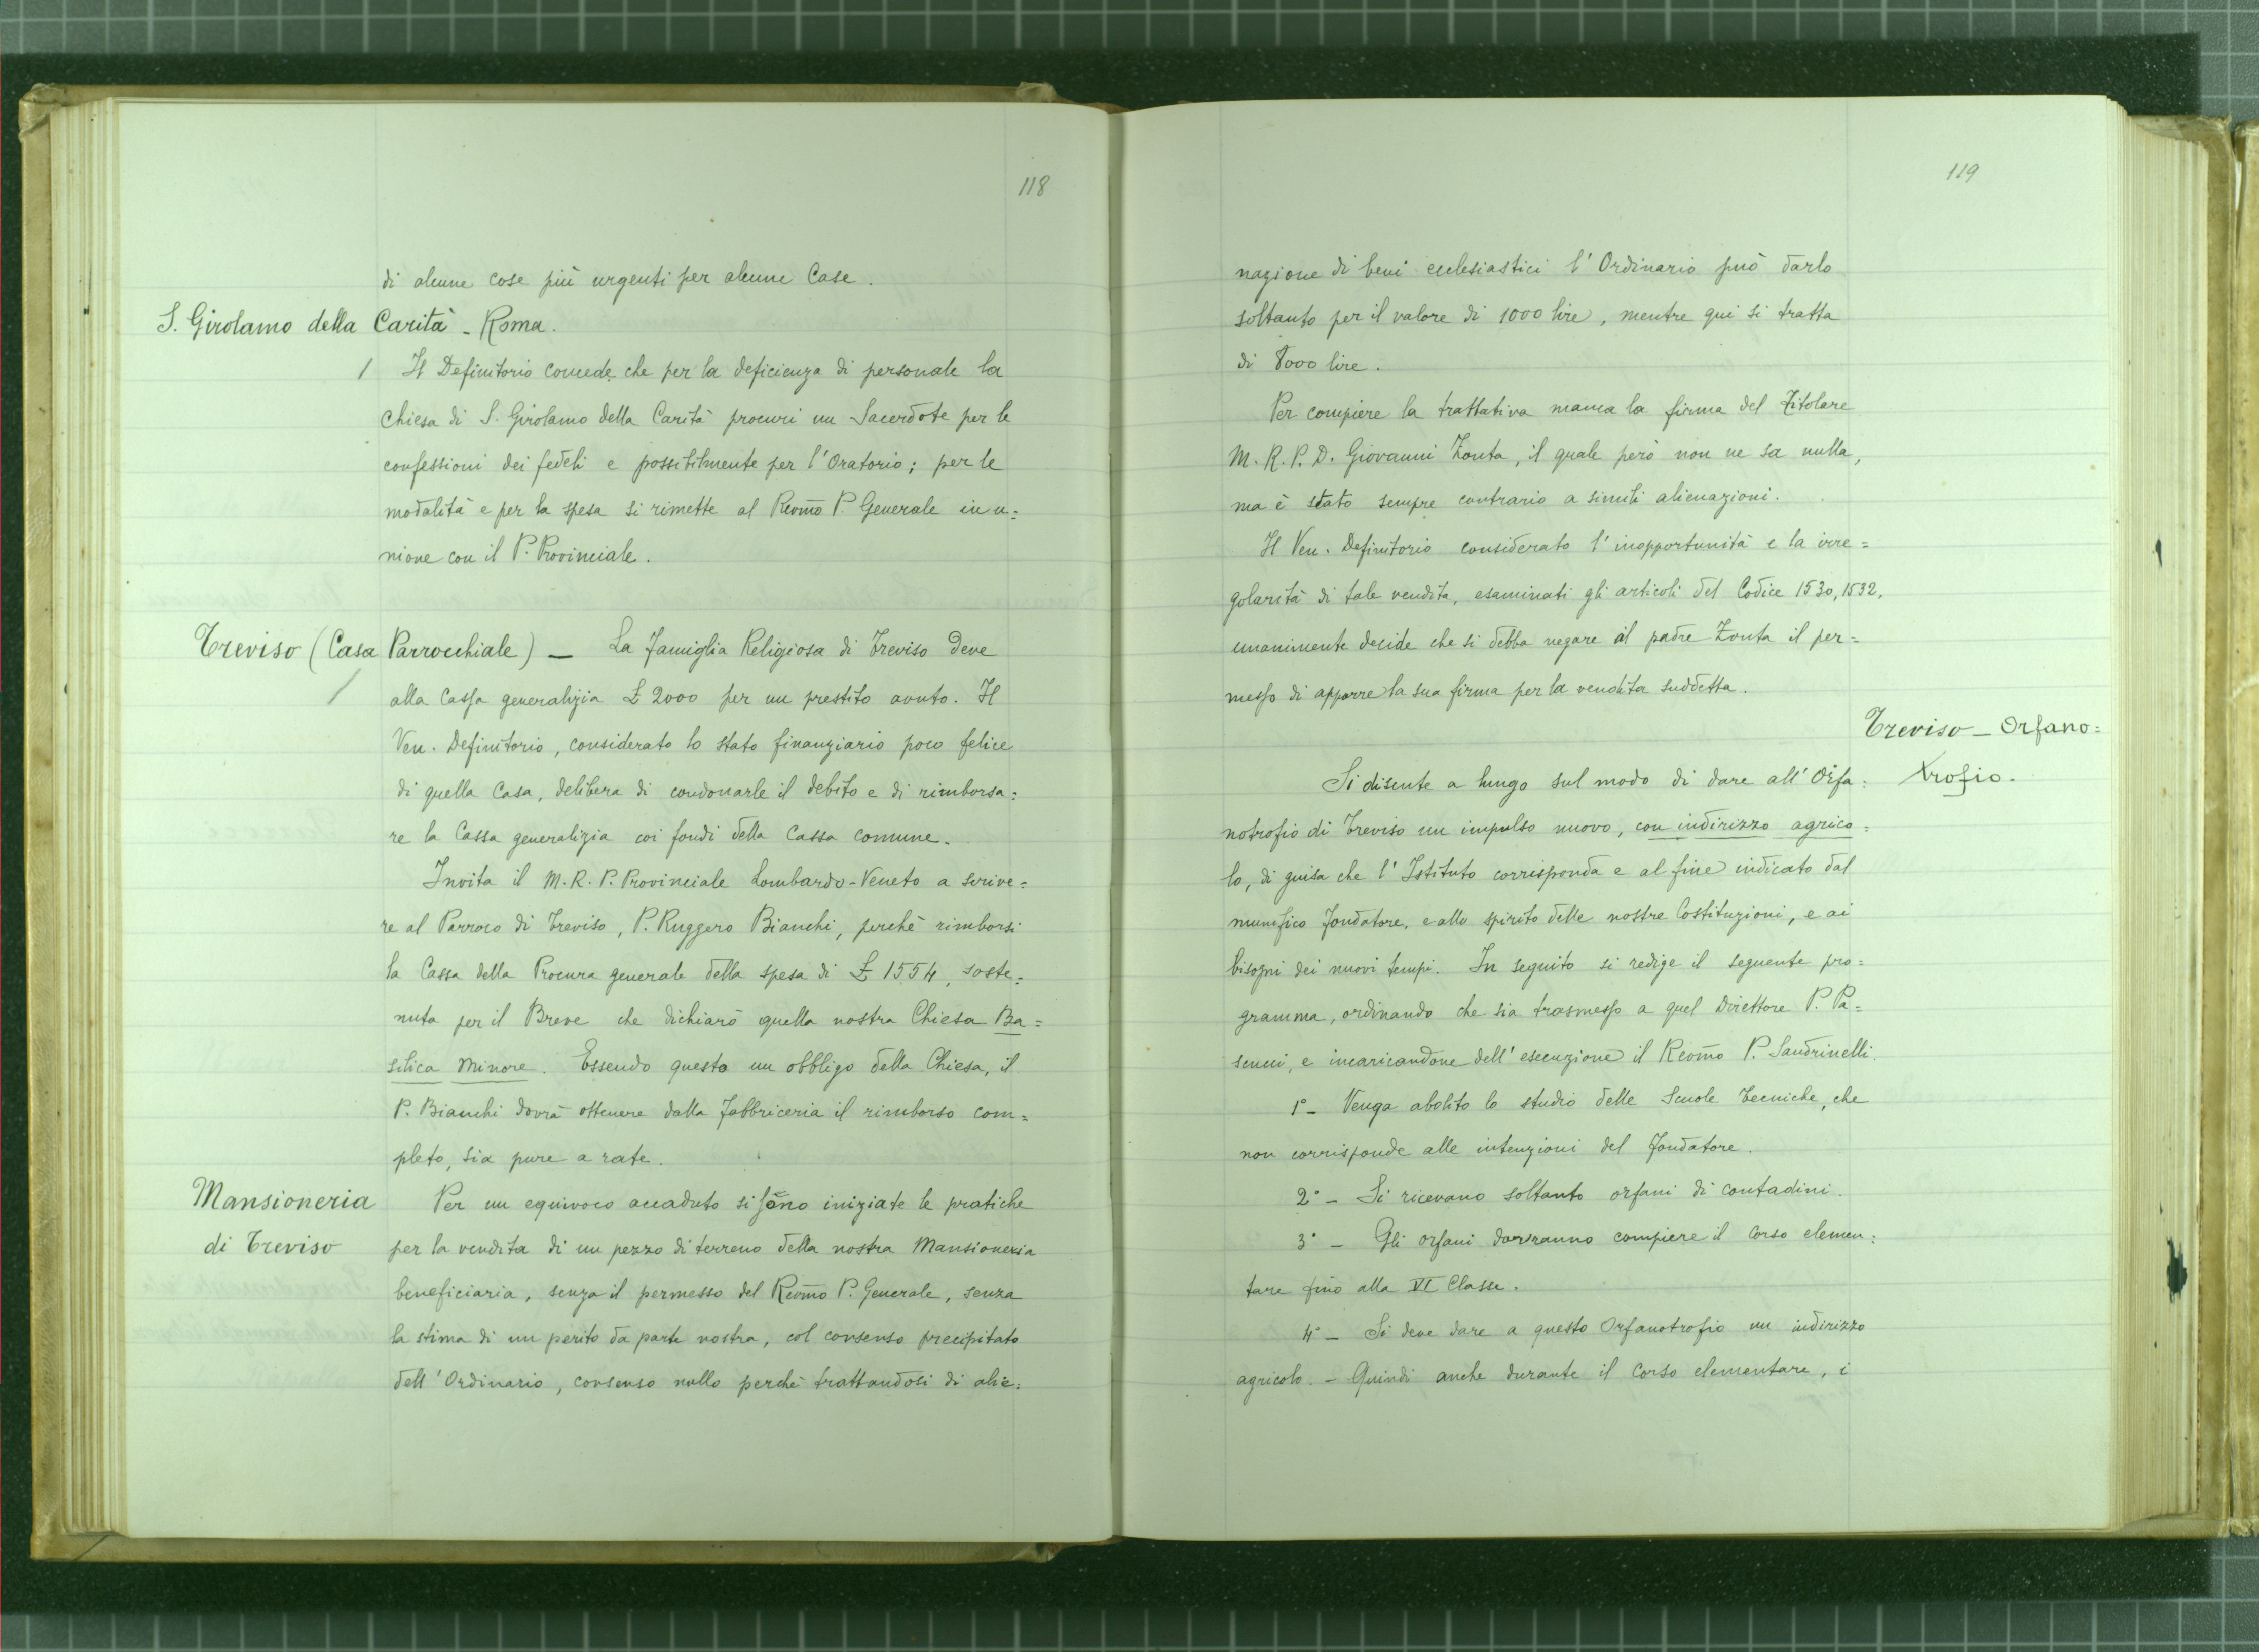 118
di alcune cose più urgenti per alcune Case.
S. Girolamo della Carità - Roma.
/ Il Definitorio concede che per la deficienza di personale la
Chiesa di S. Girolamo della Carità procuri un Sacerdote per le
confessioni dei fedeli e possibilmente per l'Oratorio; per le
modalità e per la spesa si rimette al Revm̃o P. Generale in u=
nione con il P. Provinciale.
Treviso (Casa Parrocchiale) — La Famiglia Religiosa di Treviso deve
/ alla Cassa generalizia £ 2000 per un prestito avuto. Il
Ven. Definitorio, considerato lo stato finanziario poco felice
di quella Casa, delibera di condonarle il debito e di rimborsa=
re la Cassa generalizia coi fondi della Cassa comune.
Invita il M.R.P. Provinciale Lombardo-Veneto a scrive=
re al Parroco di Treviso, P. Ruggero Bianchi, perchè rimborsi
la Cassa della Procura generale della spesa di £ 1554, soste=
nuta per il Breve che dichiarò quella nostra Chiesa Ba=
silica Minore. Essendo questo un obbligo della Chiesa, il
P. Bianchi dovrà ottenere dalla Fabbriceria il rimborso com=
pleto, sia pure a rate.
Mansioneria
di Treviso
Per un equivoco accaduto si sono iniziate le pratiche
per la vendita di un pezzo di terreno della nostra Mansioneria
beneficiaria, senza il permesso del Revm̃o P. Generale, senza
la stima di un perito da parte nostra, col consenso precipitato
dell'Ordinario, consenso nullo perchè trattandosi di alie=
119
nazione di beni ecclesiastici l'Ordinario può darlo
soltanto per il valore di 1000 lire, mentre qui si tratta
di 8000 lire.
Per compiere la trattativa manca la firma del Titolare
M.R.P.D. Giovanni Zonta, il quale però non ne sa nulla,
ma è stato sempre contrario a simili alienazioni.
Il Ven. Definitorio considerato l'inopportunità e la irre=
golarità di tale vendita, esaminati gli articoli del Codice 1530, 1532,
unanimente decide che si debba negare al padre Zonta il per=
messo di apporre la sua firma per la vendita suddetta.
Treviso - Orfano=
trofio.
Si discute a lungo sul modo di dare all'Orfa=
notrofio di Treviso un impulso nuovo, con indirizzo agrico=
lo, di guisa che l'Istituto corrisponda e al fine indicato dal
munifico fondatore, e allo spirito delle nostre Costituzioni, e ai
bisogni dei nuovi tempi. In seguito si redige il seguente pro=
gramma, ordinando che sia trasmesso a quel Direttore P. Pa=
scucci, e incaricandone dell'esecuzione il Revm̃o P. Sandrinelli.
1º - Venga abolito lo studio delle Scuole Tecniche, che
non corrisponde alle intenzioni del Fondatore.
2º - Si ricevano soltanto orfani di contadini.
3º - Gli orfani dovranno compiere il Corso elemen=
tare fino alla VI Classe.
4º - Si deve dare a questo Orfanotrofio un indirizzo
agricolo. - Quindi anche durante il Corso elementare, i